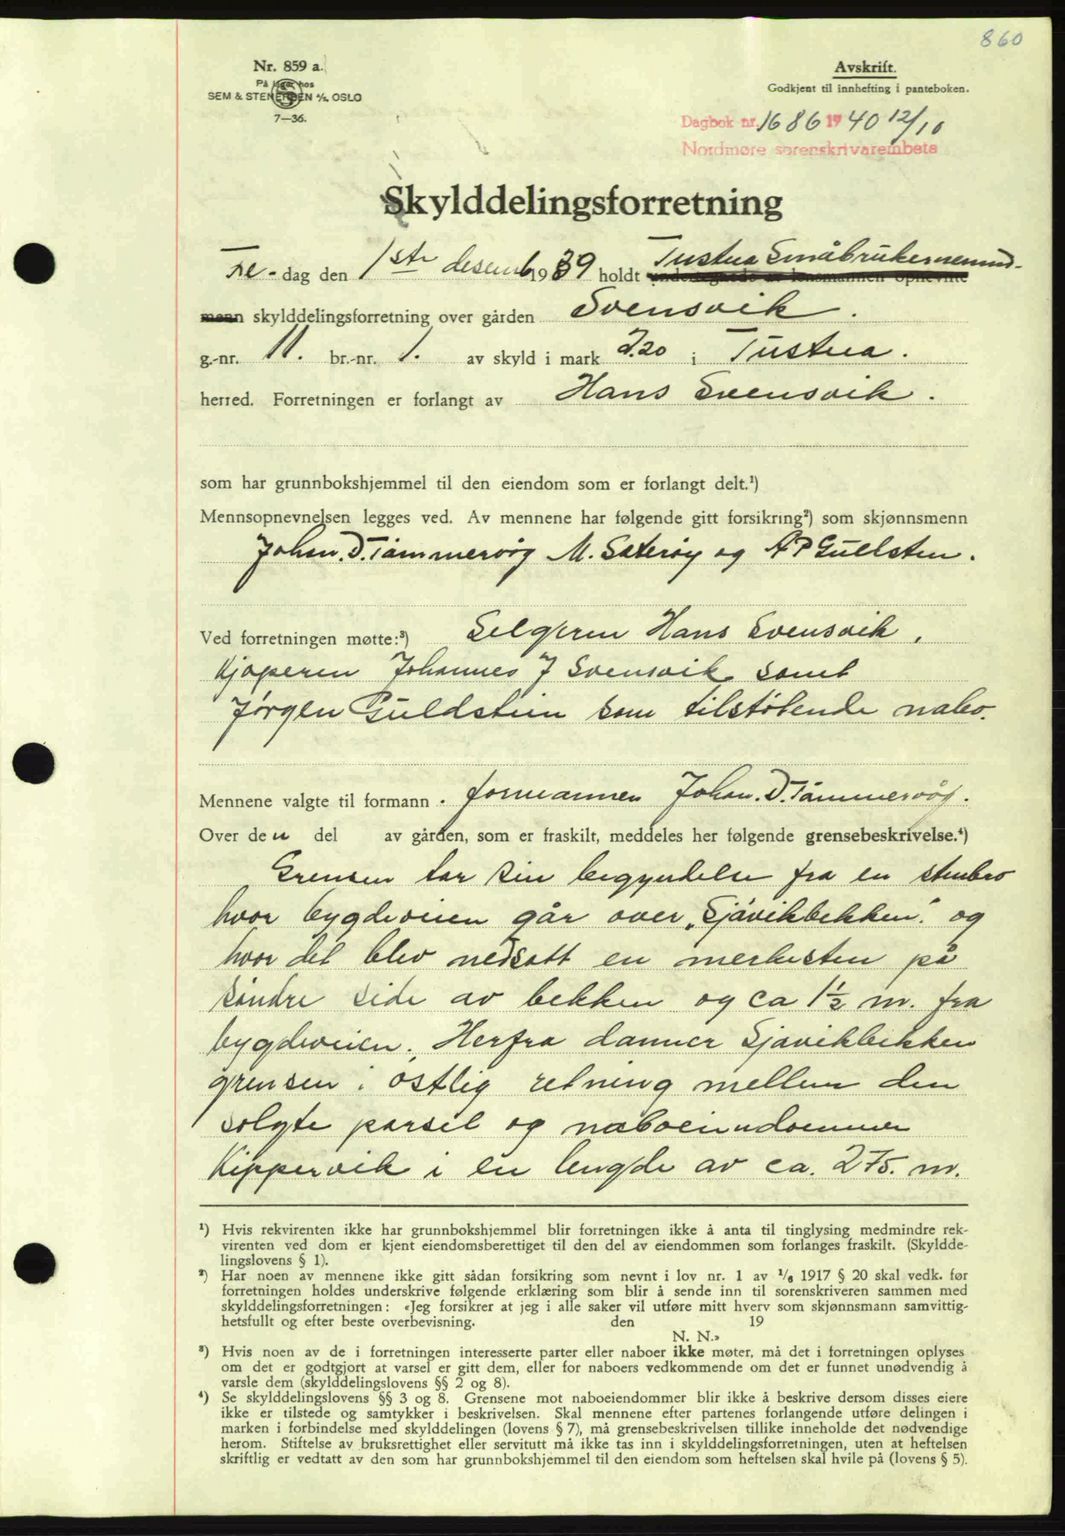 860
Nr. 859 a.
På lager hos
SEM & STENERSEN A/S, OSLO
7—36.
Avskrift.
Godkjent til innhefting i panteboken.
Dagbok nr. 1686 1940 12/10
Nordmøre sorenskrivarembete
Skylddelingsforretning
Fre-dag den 1ste desemb 1939 holdt Tustna Småbrukernemnd-
undertegnede av lensmannen opnevnte
menn skylddelingsforretning over gården Svensvik.
g.-nr. 11. br.-nr. 1. av skyld i mark 2.20 i Tustna.
herred. Forretningen er forlangt av Hans Svensvik.
som har grunnbokshjemmel til den eiendom som er forlangt delt.¹)
Mennsopnevnelsen legges ved. Av mennene har følgende gitt forsikring²) som skjønnsmenn
Johan. D. Tømmervåg M. Sæterøy og A P Gullsten.
Ved forretningen møtte:³) Selgeren Hans Svensvik,
Kjøperen Johannes J Svensvik samt
Jørgen Guldstein som tilstøtende nabo.
Mennene valgte til formann. formannen Johan. D. Tømmervåg.
Over den del av gården, som er fraskilt, meddeles her følgende grensebeskrivelse.⁴)
Grensen tar sin begyndelse fra en stenbro
hvor bygdeveien går over „Sjåvikbekken" og
hvor det blev nedsatt en merkesten på
søndre side av bekken og ca 1½ m. fra
bygdeveien. Herfra danner Sjåvikbekken
grensen i østlig retning mellem den
solgte parsel og naboeiendommen
Kippervik i en lengde av ca. 275. m.
¹) Hvis rekvirenten ikke har grunnbokshjemmel blir forretningen ikke å anta til tinglysing medmindre rek-
virenten ved dom er kjent eiendomsberettiget til den del av eiendommen som forlanges fraskilt. (Skyldde-
lingslovens § 1).
²) Har noen av mennene ikke gitt sådan forsikring som nevnt i lov nr. 1 av 1/6 1917 § 20 skal vedk. før
forretningen holdes underskrive følgende erklæring som blir å sende inn til sorenskriveren sammen med
skylddelingsforretningen: «Jeg forsikrer at jeg i alle saker vil utføre mitt hverv som skjønnsmann samvittig-
hetsfullt og efter beste overbevisning. den 19
N. N.»
³) Hvis noen av de i forretningen interesserte parter eller naboer ikke møter, må det i forretningen oplyses
om det er godtgjort at varsel er gitt dem, eller for naboers vedkommende om det er funnet unødvendig å
varsle dem (skylddelingslovens §§ 2 og 8).
⁴) Se skylddelingslovens §§ 3 og 8. Grensene mot naboeiendommer blir ikke å beskrive dersom disses eiere
ikke er tilstede og samtykker i beskrivelsen. Skal mennene efter partenes forlangende utføre delingen i
marken i forbindelse med skylddelingen (lovens § 7), må grensebeskrivelsen tillike inneholde det nødvendige
herom. Stiftelse av bruksrettighet eller servitutt må ikke tas inn i skylddelingsforretningen, uten at heftelsen
skriftlig er vedtatt av den som har grunnbokshjemmel til den eiendom som heftelsen skal hvile på (lovens § 5).